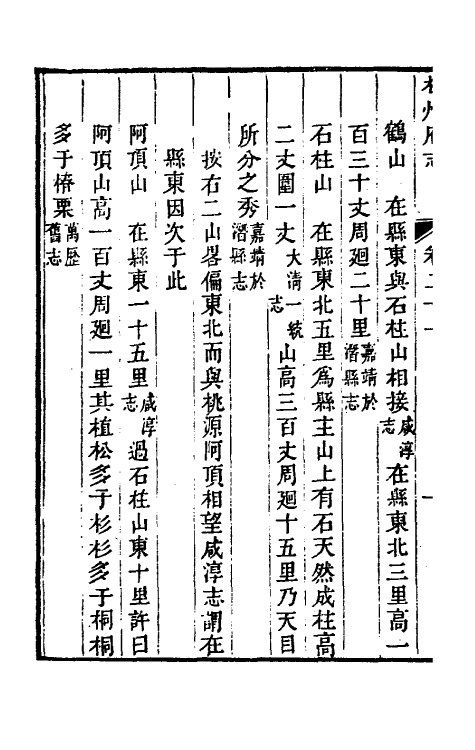 杭州府志 卷二十一 一
鶴山 在縣東與石柱山相接咸淳志在縣東北三里高一
百三十丈周廻二十里嘉靖於潛縣志
石柱山 在縣東北五里爲縣主山上有石天然成柱高
二丈圍一丈大清一統志山高三百丈周廻十五里乃天目
所分之秀嘉靖於潛縣志
按右二山畧偏東北而與桃源阿頂相望咸淳志謂在
縣東因次于此
阿頂山 在縣東一十五里咸淳志過石柱山東十里許曰
阿頂山高一百丈周廻一里其植松多于杉杉多于桐桐
多于椿栗萬歷舊志